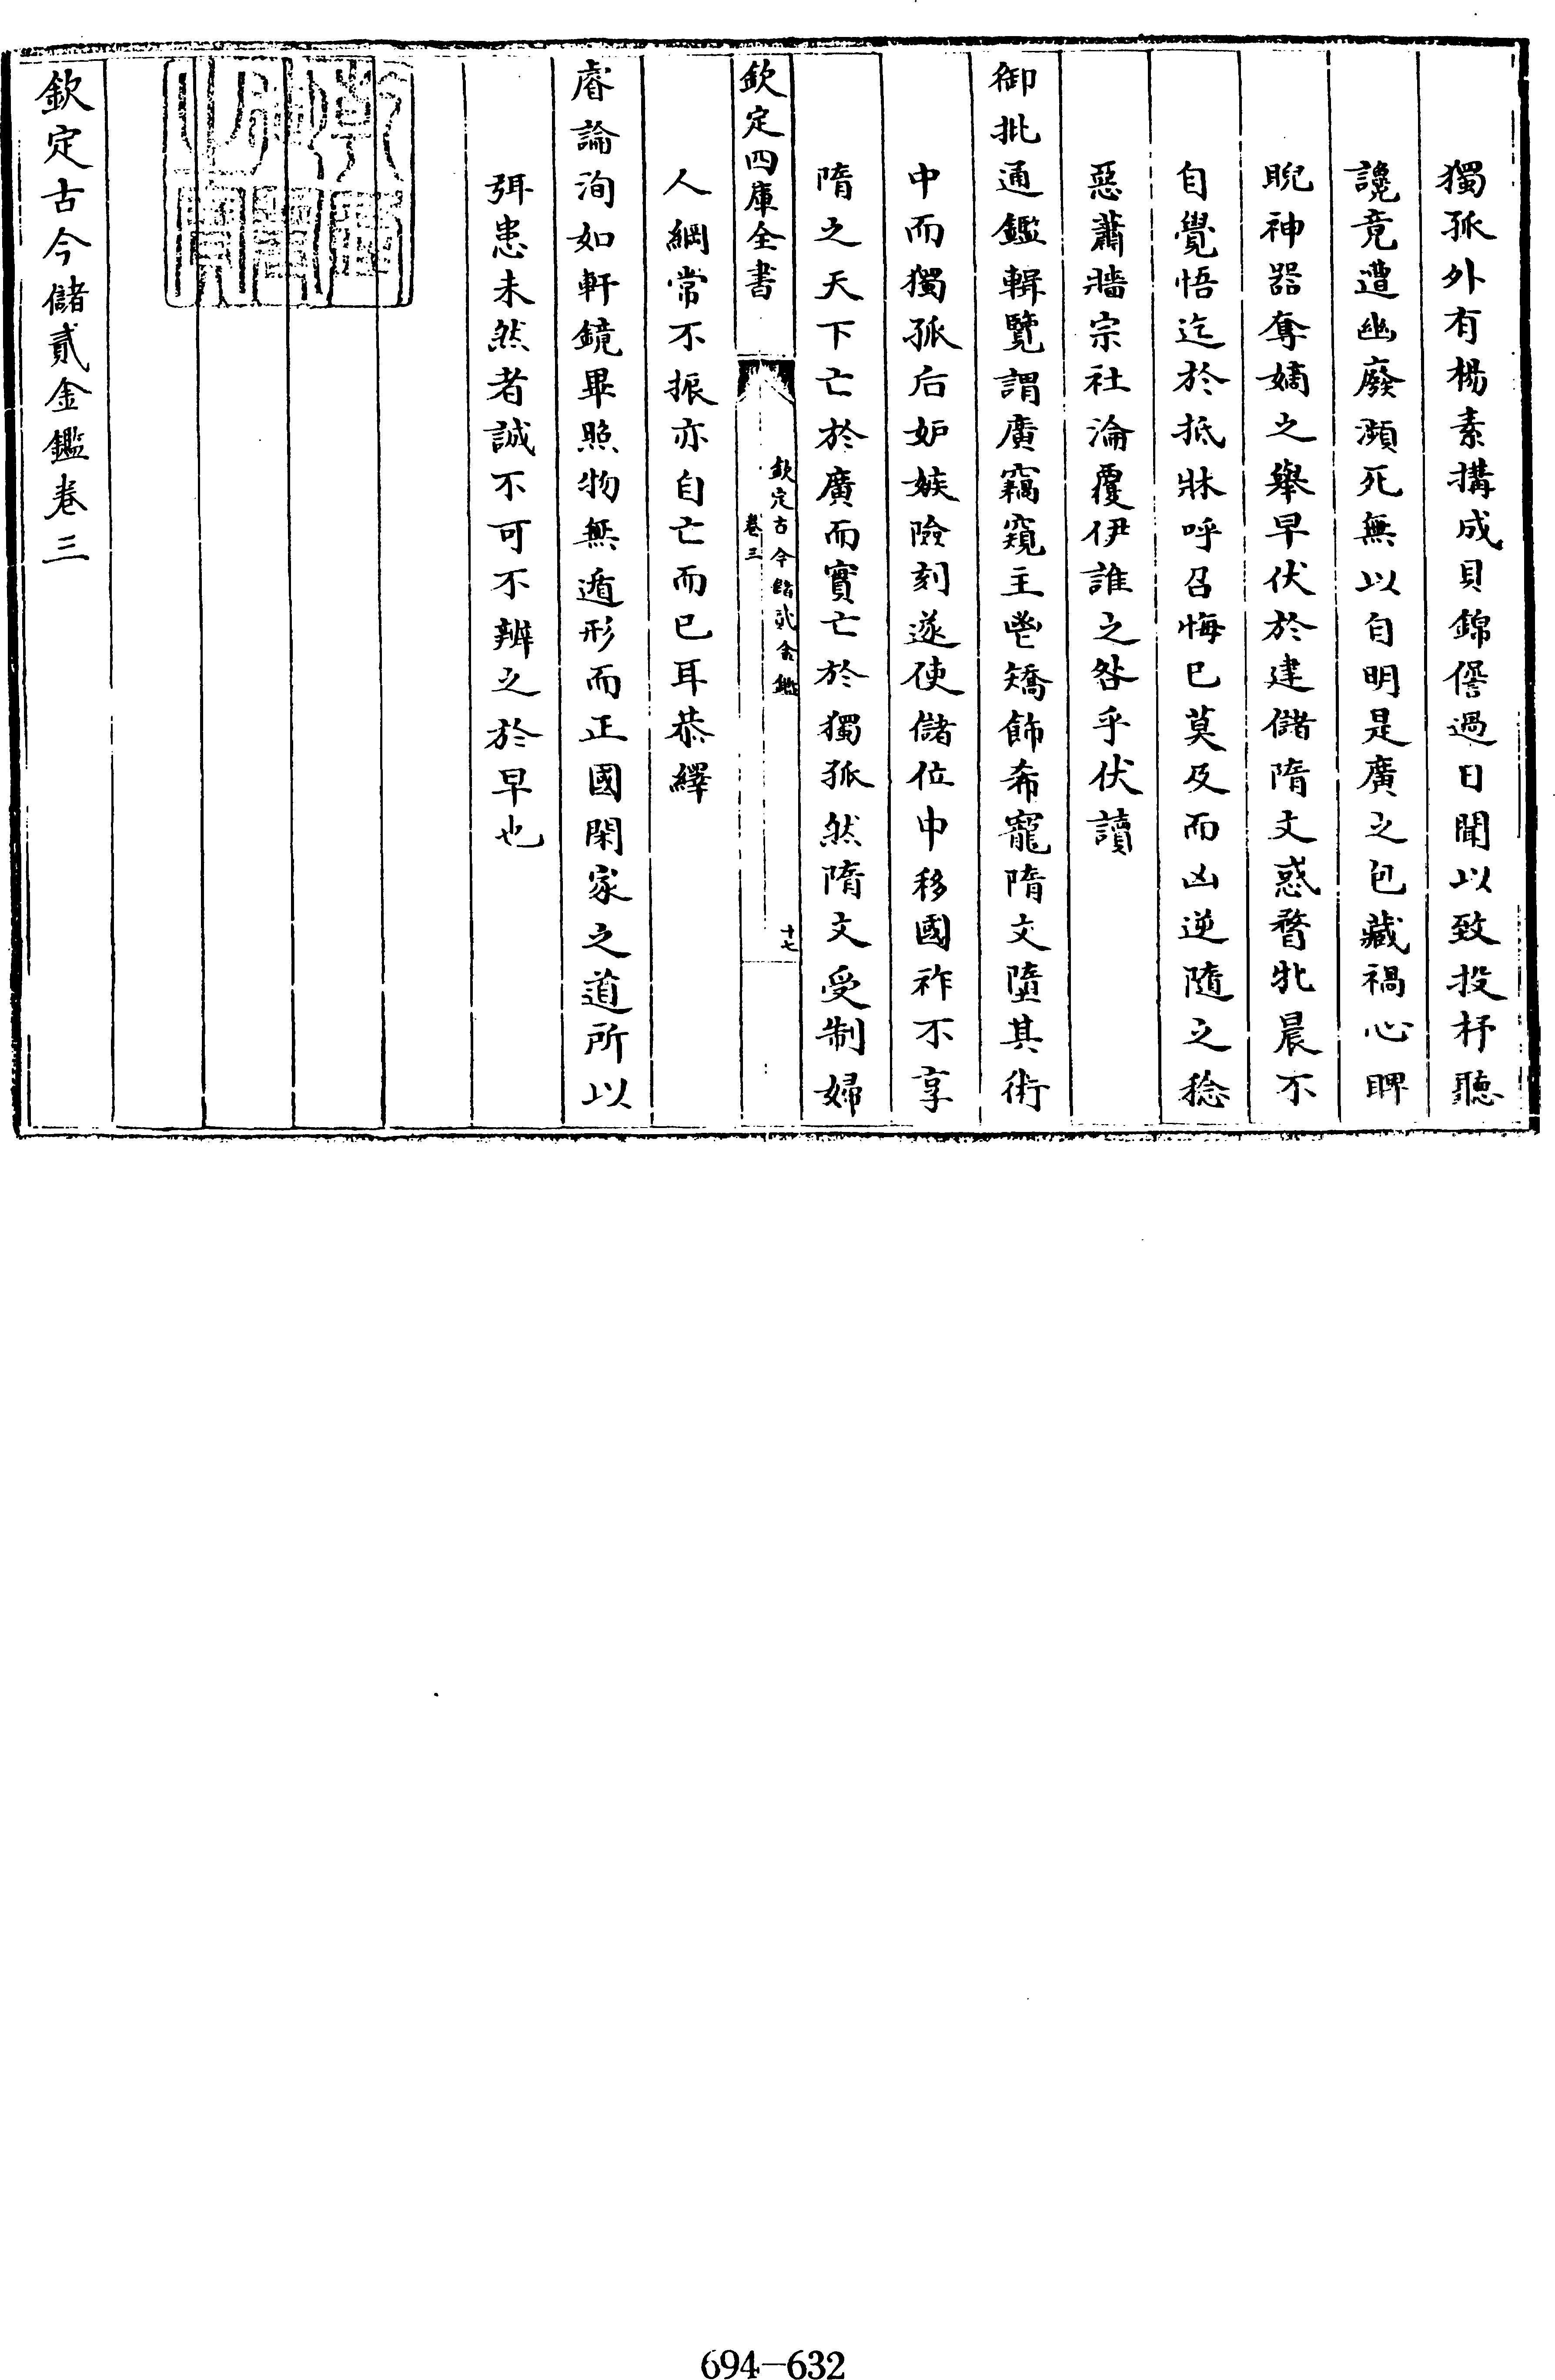 獨孤外有楊素搆成貝錦僭過日聞以致投杼聽
讒竟遭幽廢瀕死無以自明是廣之包藏禍心睥
睨神器奪嫡之舉早伏於建儲隋文惑瞀牝晨不
自覺悟迄於抵牀呼召悔已莫及而凶逆隨之稔
惡蕭牆宗社淪覆伊誰之咎乎伏讀
御批通鑑輯覽謂廣竊窺主鬯矯飾希寵隋文墮其術
中而獨孤后妒嫉險刻遂使儲位中移國祚不享
隋之天下亡於廣而實亡於獨孤然隋文受制婦
欽定四庫全書
欽定古今儲貳金鑑
卷三
十七
人綱常不振亦自亡而已耳恭繹
睿論洵如軒鏡畢照物無遁形而正國閑家之道所以
弭患未然者誠不可不辨之於早也
欽定古今儲貳金鑑卷三
694-632